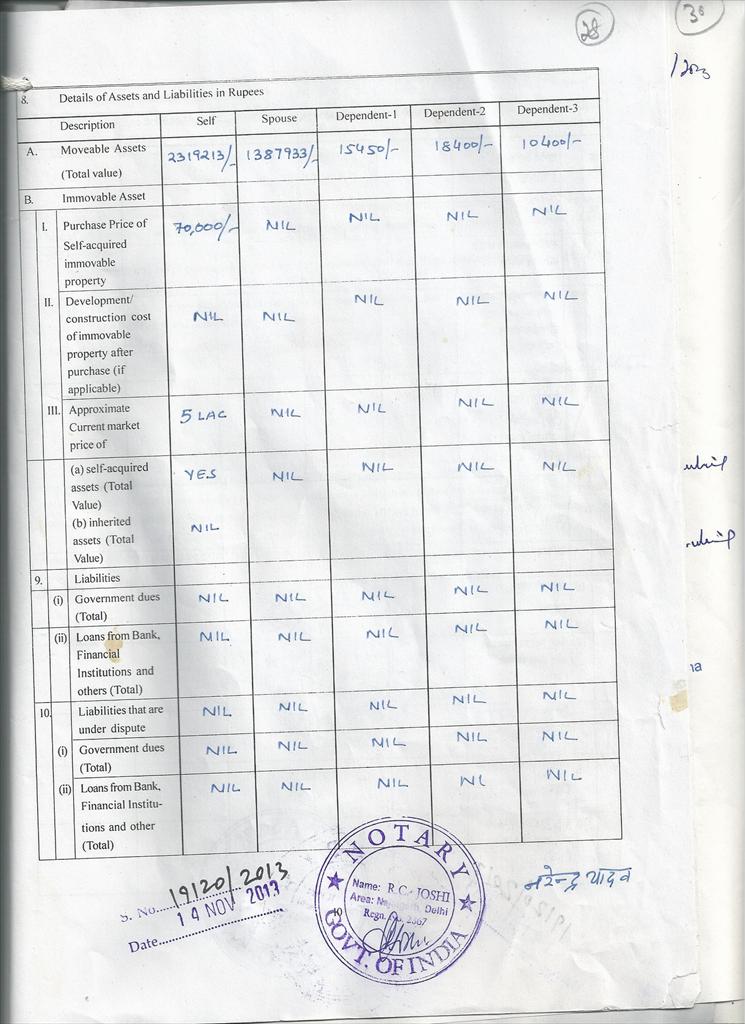 28
30
/2013
8. Details of Assets and Liabilities in Rupees
Description Self Spouse Dependent-1 Dependent-2 Dependent-3
A. Moveable Assets 2319213/- 1387933/- 15450/- 18400/- 10400/-
(Total value)
B. Immovable Asset
I. Purchase Price of 70,000/- NIL NIL NIL NIL
Self-acquired
immovable
property
II. Development/ NIL NIL NIL NIL NIL
construction cost
of immovable
property after
purchase (if
applicable)
III. Approximate 5 LAC NIL NIL NIL NIL
Current market
price of
(a) self-acquired YES NIL NIL NIL NIL
assets (Total
Value)
(b) inherited NIL
assets (Total
Value)
9. Liabilities
(i) Government dues NIL NIL NIL NIL NIL
(Total)
(ii) Loans from Bank, NIL NIL NIL NIL NIL
Financial
Institutions and
others (Total)
10. Liabilities that are NIL NIL NIL NIL NIL
under dispute
(i) Government dues NIL NIL NIL NIL NIL
(Total)
(ii) Loans from Bank, NIL NIL NIL NI NIL
Financial Institu-
tions and other
(Total)
S. No. 19120/2013
14 NOV 2013
Date
NOTARY
Name: R.C. JOSHI
Area: Delhi
Regn.
10
GOVT. OF INDIA
नरेन्द्र यादव
na